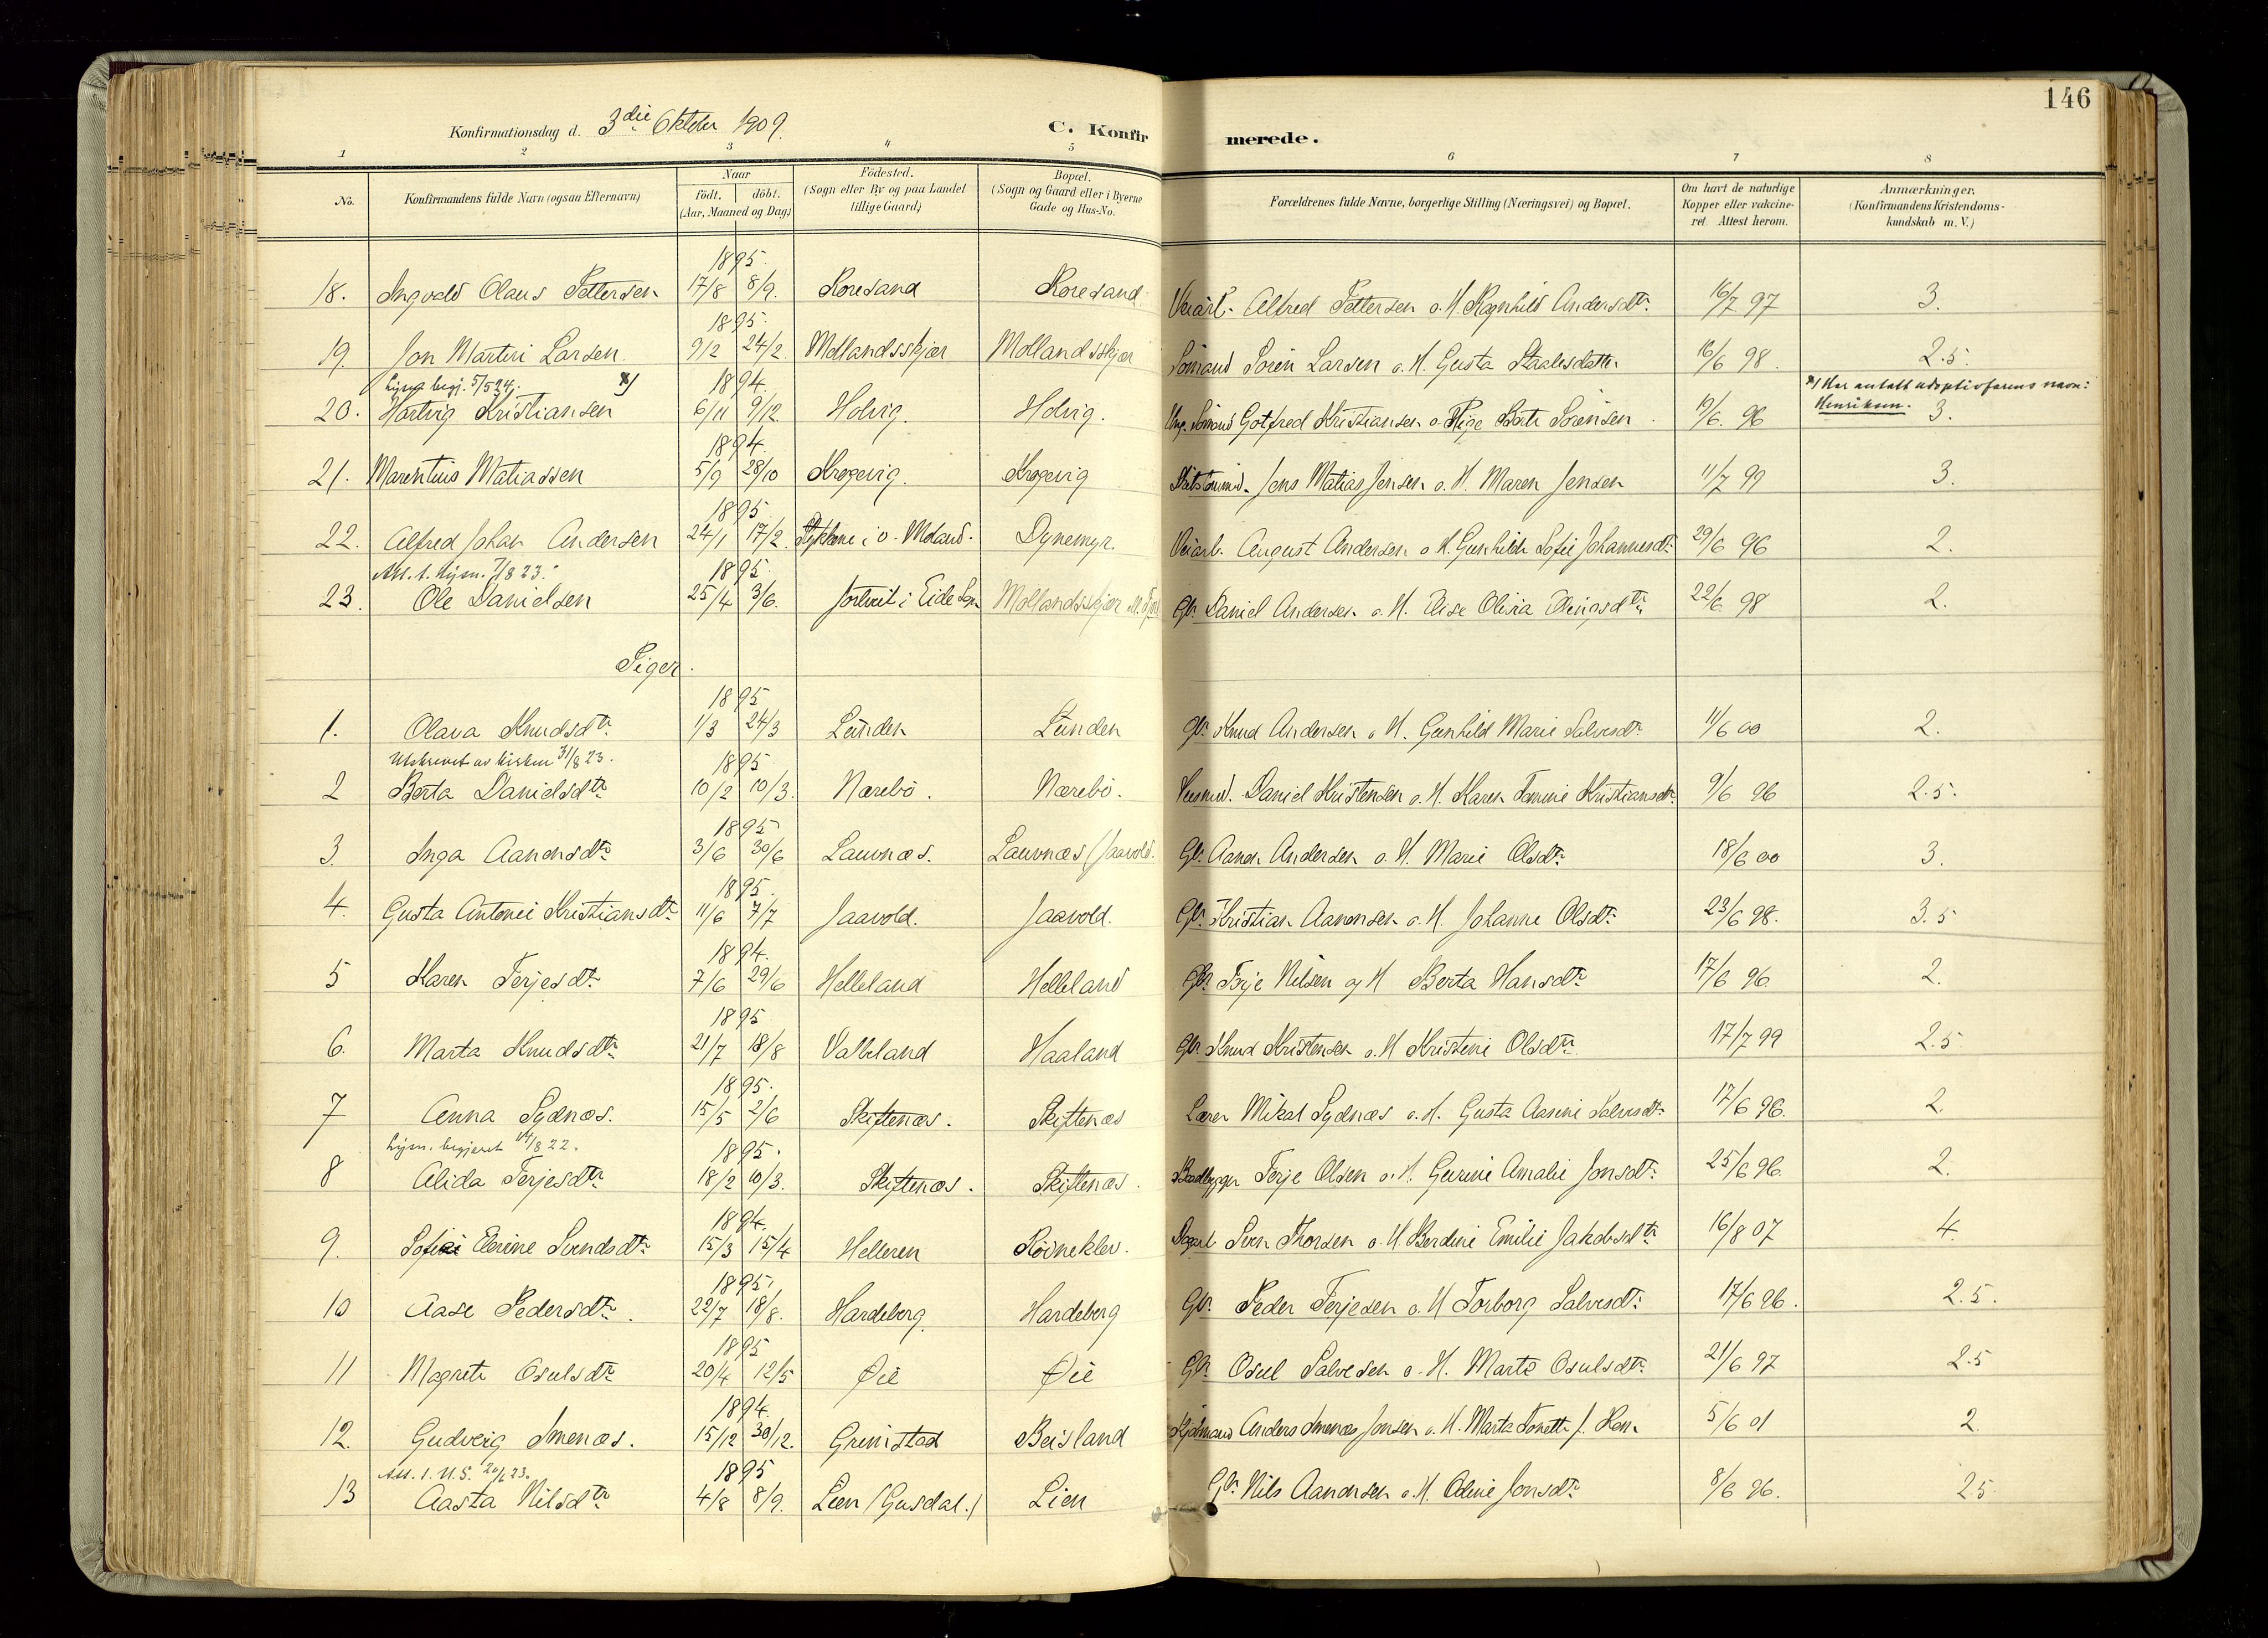 146
Konfirmationsdag d. 3die Oktober 1909.
C. Konfirmerede.
1 2 3 4 5 6 7 8
No. Konfirmandens fulde Navn (ogsaa Efternavn) Naar födt. döbt. (Aar, Maaned og Dag) Födested. (Sogn eller By og paa Landet tillige Gaard) Bopæl. (Sogn og Gaard eller i Byerne Gade og Hus-No. Forældrenes fulde Navne, borgerlige Stilling (Næringsvei) og Bopæl. Om havt de naturlige Kopper eller vakcineret Attest herom. Anmærkninger. (Konfirmandens Kristendomskundskab m. V.)
1895.
18. Ingvald Olaus Pettersen 17/8 8/9. Roresand Roresand Veiarb. Alfred Pettersen o. H. Ragnhild Andersdtr. 16/7 97 3.
1895.
19. Jon Martin Larsen 9/2 24/2. Mollandsskjær Mollandsskjær Sömand Sören Larsen o. H. Gusta Staalesdatter 16/6 98. 2.5.
Lysn. begj. 5/5 24. x) 1894. x) Har antatt adoptivfarens navn: Henriksen.
20. Hartvig Kristiansen 6/11 9/12. Holvig. Holvig. Ung. Sömand Gotfred Kristiansen o. Pige Berte Sörensen 19/6. 96 3.
1894.
21. Marentius Matiassen 5/9 28/10 Krogevig. Krogevig Jens Matias Jensen o. H. Maren Jensen 11/7 99 3.
1895.
22. Alfred Johan Andersen 24/1 17/2. i ö. Moland. Dynemyr. Veiarb. August Andersen o. H. Gunhilde Sofie Johannesdtr. 29/6 96 2.
Att. t. lysn. 7/8 23. 1895.
23. Ole Danielsen 25/4 3/6. Jortveit i Eide Sogn Mollandsskjær Gbr. Daniel Andersen o. H. Else Olivia Ellingsdtr. 22/6 98 2.
Piger.
1895
1. Olava Knudsdtr. 1/3 24/3 Lunden Lunden Gbr. Knud Andersen o. H. Gunhild Marie Salvesdtr 11/6 00 2.
Utskrevet av kirken 31/8 23. 1895
2 Berta Danielsdtr. 10/2 10/3. Nærebö. Nærebö. Daniel Kristensen o. H. Karen Tomine Kristiansdtr. 9/6 96 2.5.
1895
3. Inga Aanonsdtr. 3/6 30/6 Lauvnæs. Lauvnæs (Jaavold. Gbr. Aanon Andersen o. H. Marie Olsdtr. 18/6 00 3.
1895.
4. Gusta Antonie Kristiansdtr. 11/6 7/7 Jaavold. Jaavold. Gbr. Kristian Aanonsen o. H. Johanne Olsdtr. 23/6 98. 3.5
1894.
5 Karen Terjesdtr. 7/6 29/6 Helleland Helleland Gbr. Terje Nilsen og H Berta Hansdtr. 17/6 96. 2.
1895
6. Marta Knudsdtr. 21/7 18/8 Valleland Haaland Gbr. Knud Kristensen o. H Kristine Olsdtr. 17/7 99 2.5
1895.
7 Anna Sydnæs. 15/5 2/6 Skiftenæs. Skiftenæs Lærer Mikal Sydnæs o. H. Gusta Aasine Salvesdtr. 17/6 96. 2.
Lysn. begjæret 14/8 22. 1895.
8 Alida Terjesdtr. 18/2 10/3. Skiftenæs. Skiftenæs. Baadbygger Terje Olsen o. H. Gurine Amalie Jonsdtr. 25/6 96 2.
1894.
9. Sofie Elerine Svendsdtr. 15/3 15/4 Helleren Röineklev. Sven Thorsen o. H Berdine Emilie Jakobsdtr 16/8 07 4.
1895.
10 Aase Pedersdtr. 22/7 18/8. Hardeberg Hardeberg Gbr. Peder Terjesen o. H Torborg Salvesdtr. 17/6 96. 2.5.
1895
11 Magrete Osulsdtr. 20/4 12/5 Øie Øie Gbr. Osul Salvesen o. H. Marte Osulsdtr. 21/6 97 2.5
1894.
12. Gudveig Smenæs. 15/12 30/12. Grimstad Beisland Anders Smenæs Jonsen o. H. Marta Tonette f. 5/6 01 2
Att. 20/6 23. 1895
13 Aasta Nilsdtr 4/8 8/9. Lien (Gusdal.) Lien Gbr. Nils Aanonsen o. H. Oline Jonsdtr. 8/6 96. 2.5